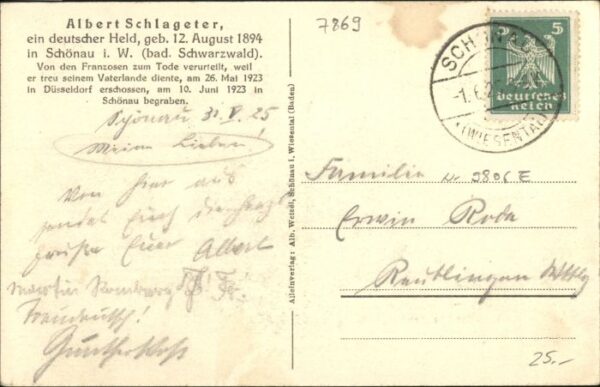 Albert Schlageter,
ein deutscher Held, geb. 12. August 1894
in Schönau i. W. (bad. Schwarzwald).
Von den Franzosen zum Tode verurteilt, weil
er treu seinem Vaterlande diente, am 26. Mai 1923
in Düsseldorf erschossen, am 10. Juni 1923 in
Schönau begraben.
Schönau 31. V. 25
Meine Lieben!
Von hier aus
sendet Euch
Grüße Euer Albert
Alleinverlag: Alb. Wetzel, Schönau i. Wiesental (Baden)
7869
5
Deutsches
Reich
SCHÖNAU
(WIESENTAL)
Familie
Erwin Roda
Reutlingen
25.-